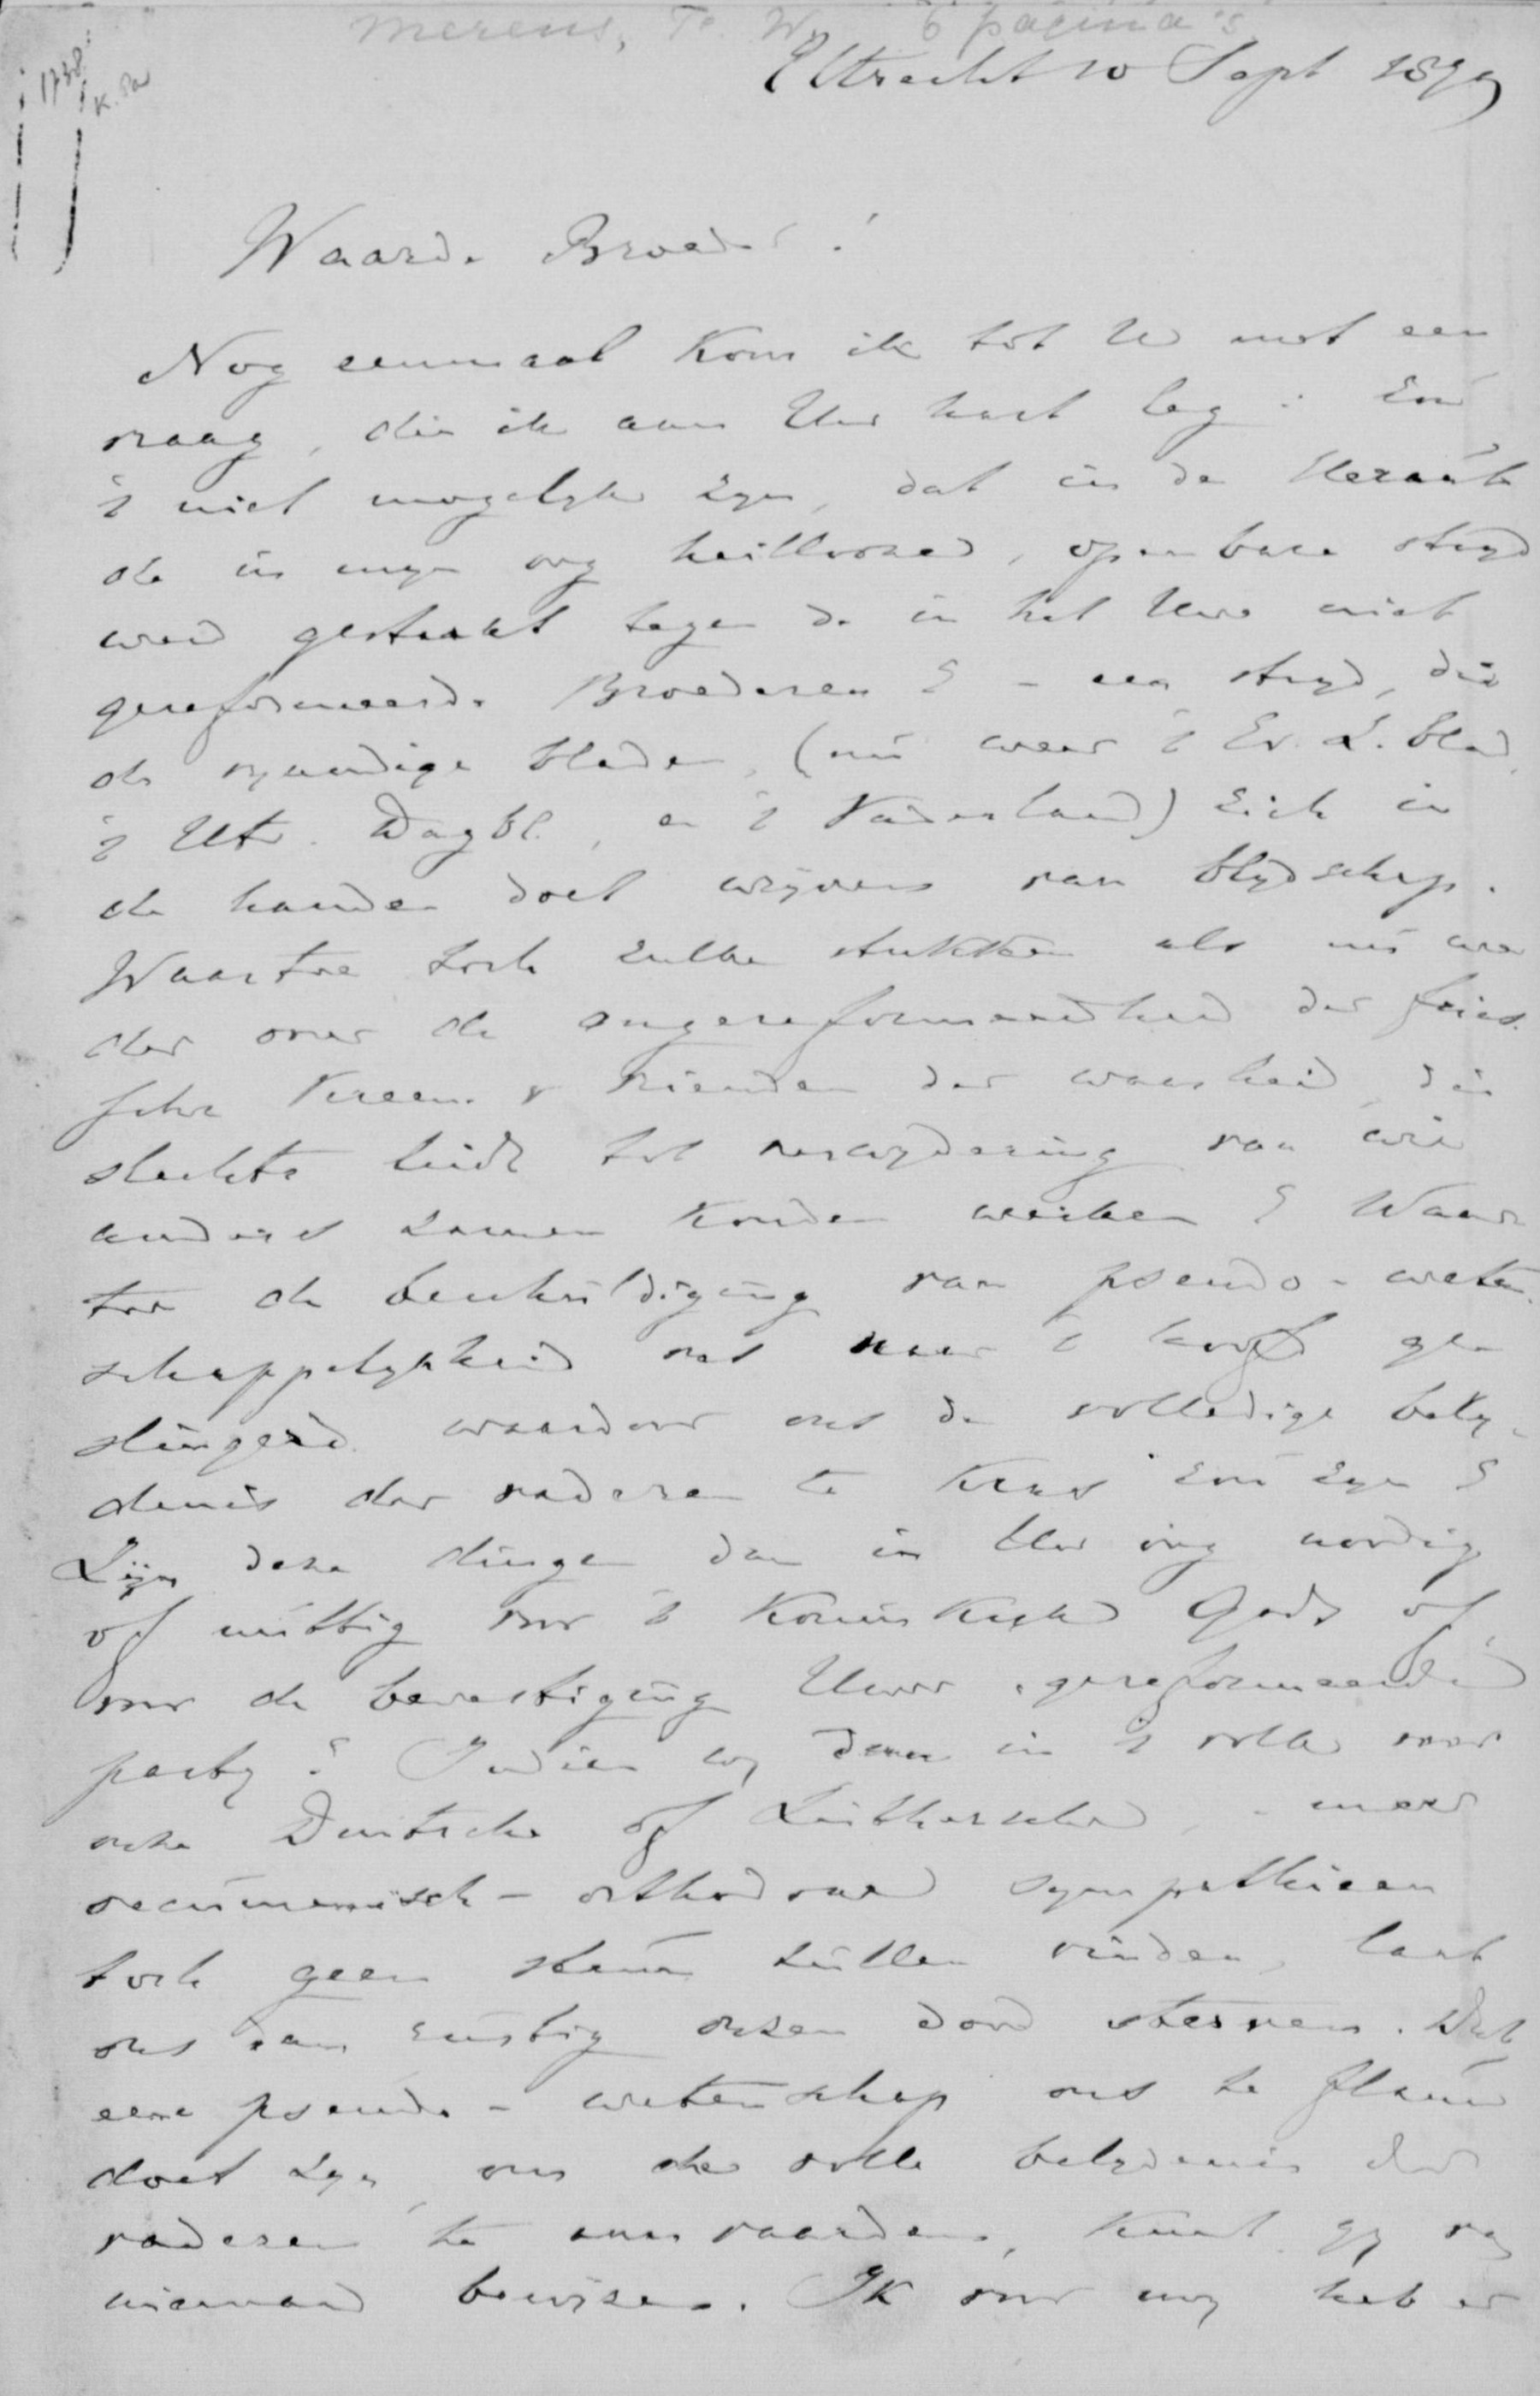 Merens, F. W. 6 pagina's
1738.
K. Par
Utrecht 10 Sept 1879
Waarde Broeder!
Nog eenmaal kom ik tot U met een
vraag, die ik aan Uw hart leg: Zou
't niet mogelijk zyn, dat in de Heraut
de in myn oog heillooze, openbare stryd
werd gestaakt tegen de in het Uwe niet
gereformeerde Broederen? – een stryd, die
de vyandige bladen, (nu weer 't Ev. Z. blad,
't Utr. Dagbl., en 't Vaderland) zich in
de handen doet wrijven van blydschap.
Waartoe toch zulke stukken als nu we
der over de ongereformeerdheid der friesche
Vereen. v Vrienden der waarheid, die
slechts leidt tot verwydering van wie
anders samen konden werken? Waar
toe de beschuldiging van pseudo-weten
schappelykheid ons naar 't hoofd ge
slingerd waardoor ons de volledige bely-
denis der vaderen te kras zou zyn?
Zijn deze dingen dan in Uw oog noodig
of nuttig voor 't Koninkryk Gods of
voor de bevestiging Uwer "gereformeerde"
party? Indien wy dan in 't volk voor
onze Duitsche of Luthersche, – meer
oecumenisch-orthodoxe sympathieen
toch geen steun zullen vinden, laat
ons dan rustig onzen dood sterven. Dat
eene pseudo-wetenschap ons te flauw
doet zyn, om de volle belydenis der
vaderen te aanvaarden, kunt gy van
niemand bewyzen. Ik voor my heb er